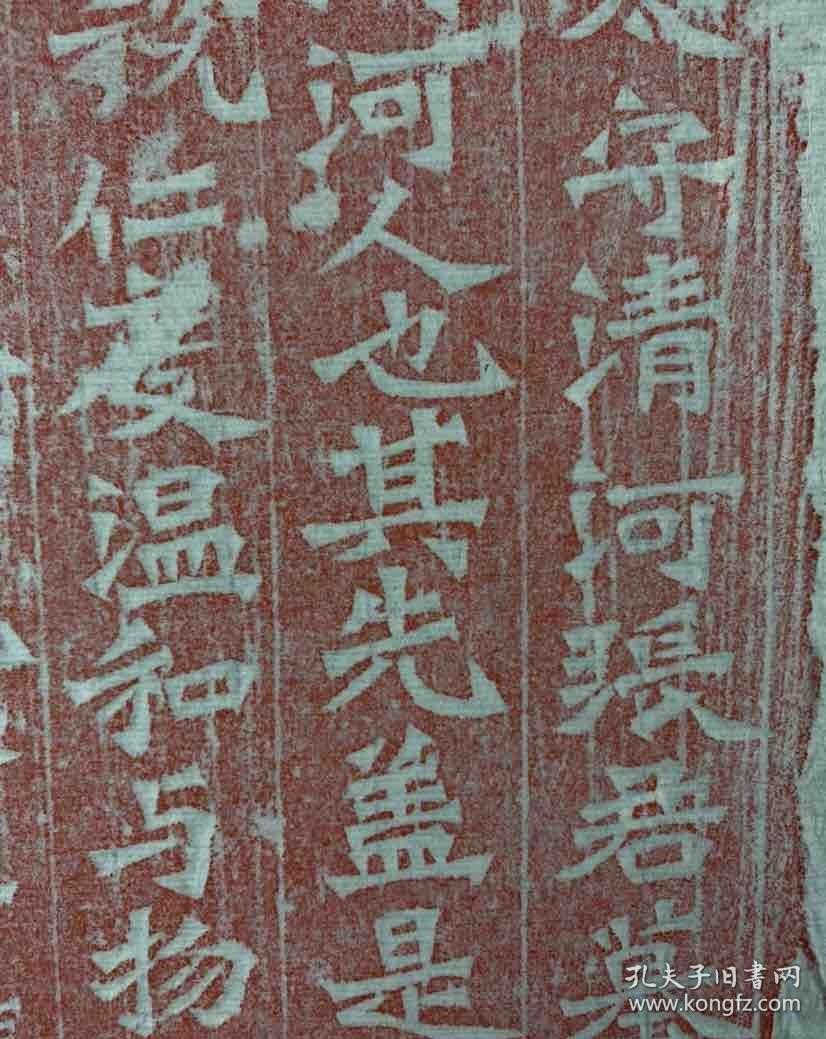 太守清河張君墓
河人也其先盖是
仁爱温和与物
孔夫子旧書网
www.kongfz.com